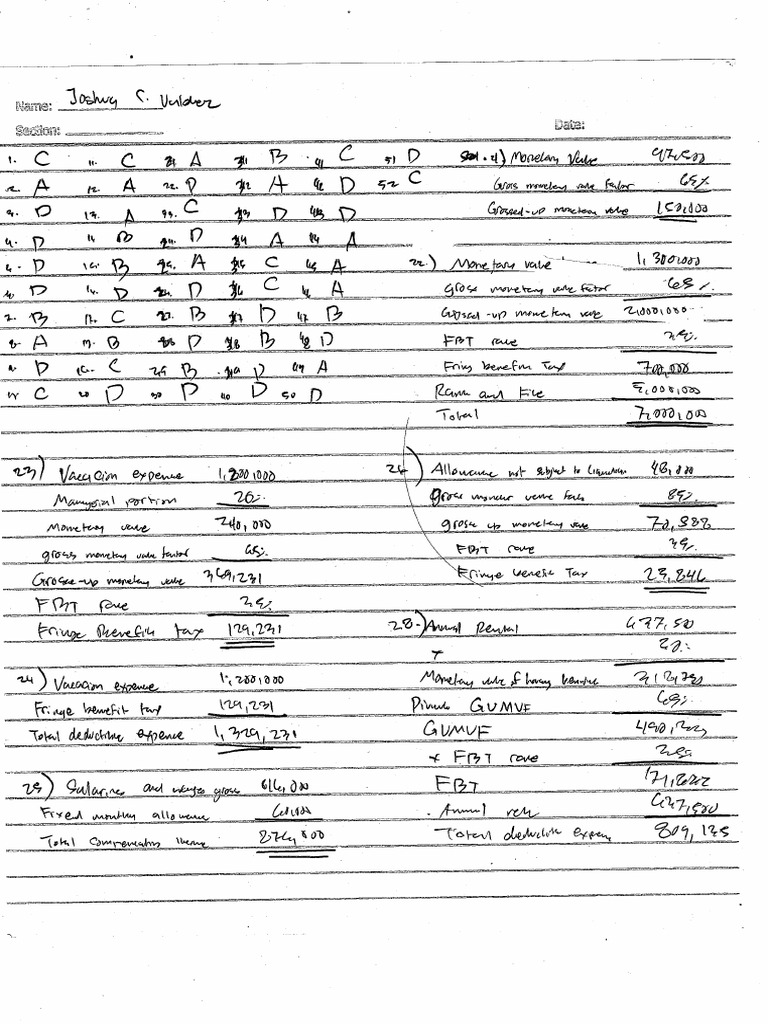 Name: Joshua C. Valdez
Section: Date:
1. C 11. C 21. A 31. B 41. C 51. D
2. A 12. A 22. D 32. A 42. D 52. C
3. D 13. A 23. C 33. D 43. D
4. D 14. B 24. D 34. A 44. A
5. D 15. B 25. A 35. C 45. A
6. D 16. D 26. D 36. C 46. A
7. B 17. C 27. B 37. D 47. B
8. A 18. B 28. D 38. B 48. D
9. D 19. C 29. B 39. D 49. A
10. C 20. D 30. D 40. D 50. D
Monetary Value 97,500
Gross monetary value factor 65%
Grossed-up monetary value 150,000
22.) Monetary value 1,300,000
gross monetary value factor 65%
Grossed-up monetary value 2,000,000
FBT rate 35%
Fring benefits Tax 700,000
Rank and File 5,000,000
Total 7,000,000
23) Vacation expense 1,200,000
Managerial portion 20%
Monetary value 240,000
gross monetary value factor 65%
Grosse-up monetary value 369,231
FBT rate 35%
Fringe Benefits tax 129,231
24) Vacation expense 1,200,000
Fringe benefit tax 129,231
Total deductible expense 1,329,231
25) Salaries and wages gross 816,000
Fixed monthly allowance 60,000
Total compensation income 876,000
26) Allowance not subject to liquidation 48,000
gross monetary value factor
gross up monetary value
FBT rate 35%
Fringe benefit Tax 25,846
28.) Annual Rental 637,500
x 50%
Monetary value of housing benefit 318,750
Divide GUMVF 65%
GUMVF
x FBT rate 35%
FBT
Annual rent 637,500
Total deductible expense 809,135